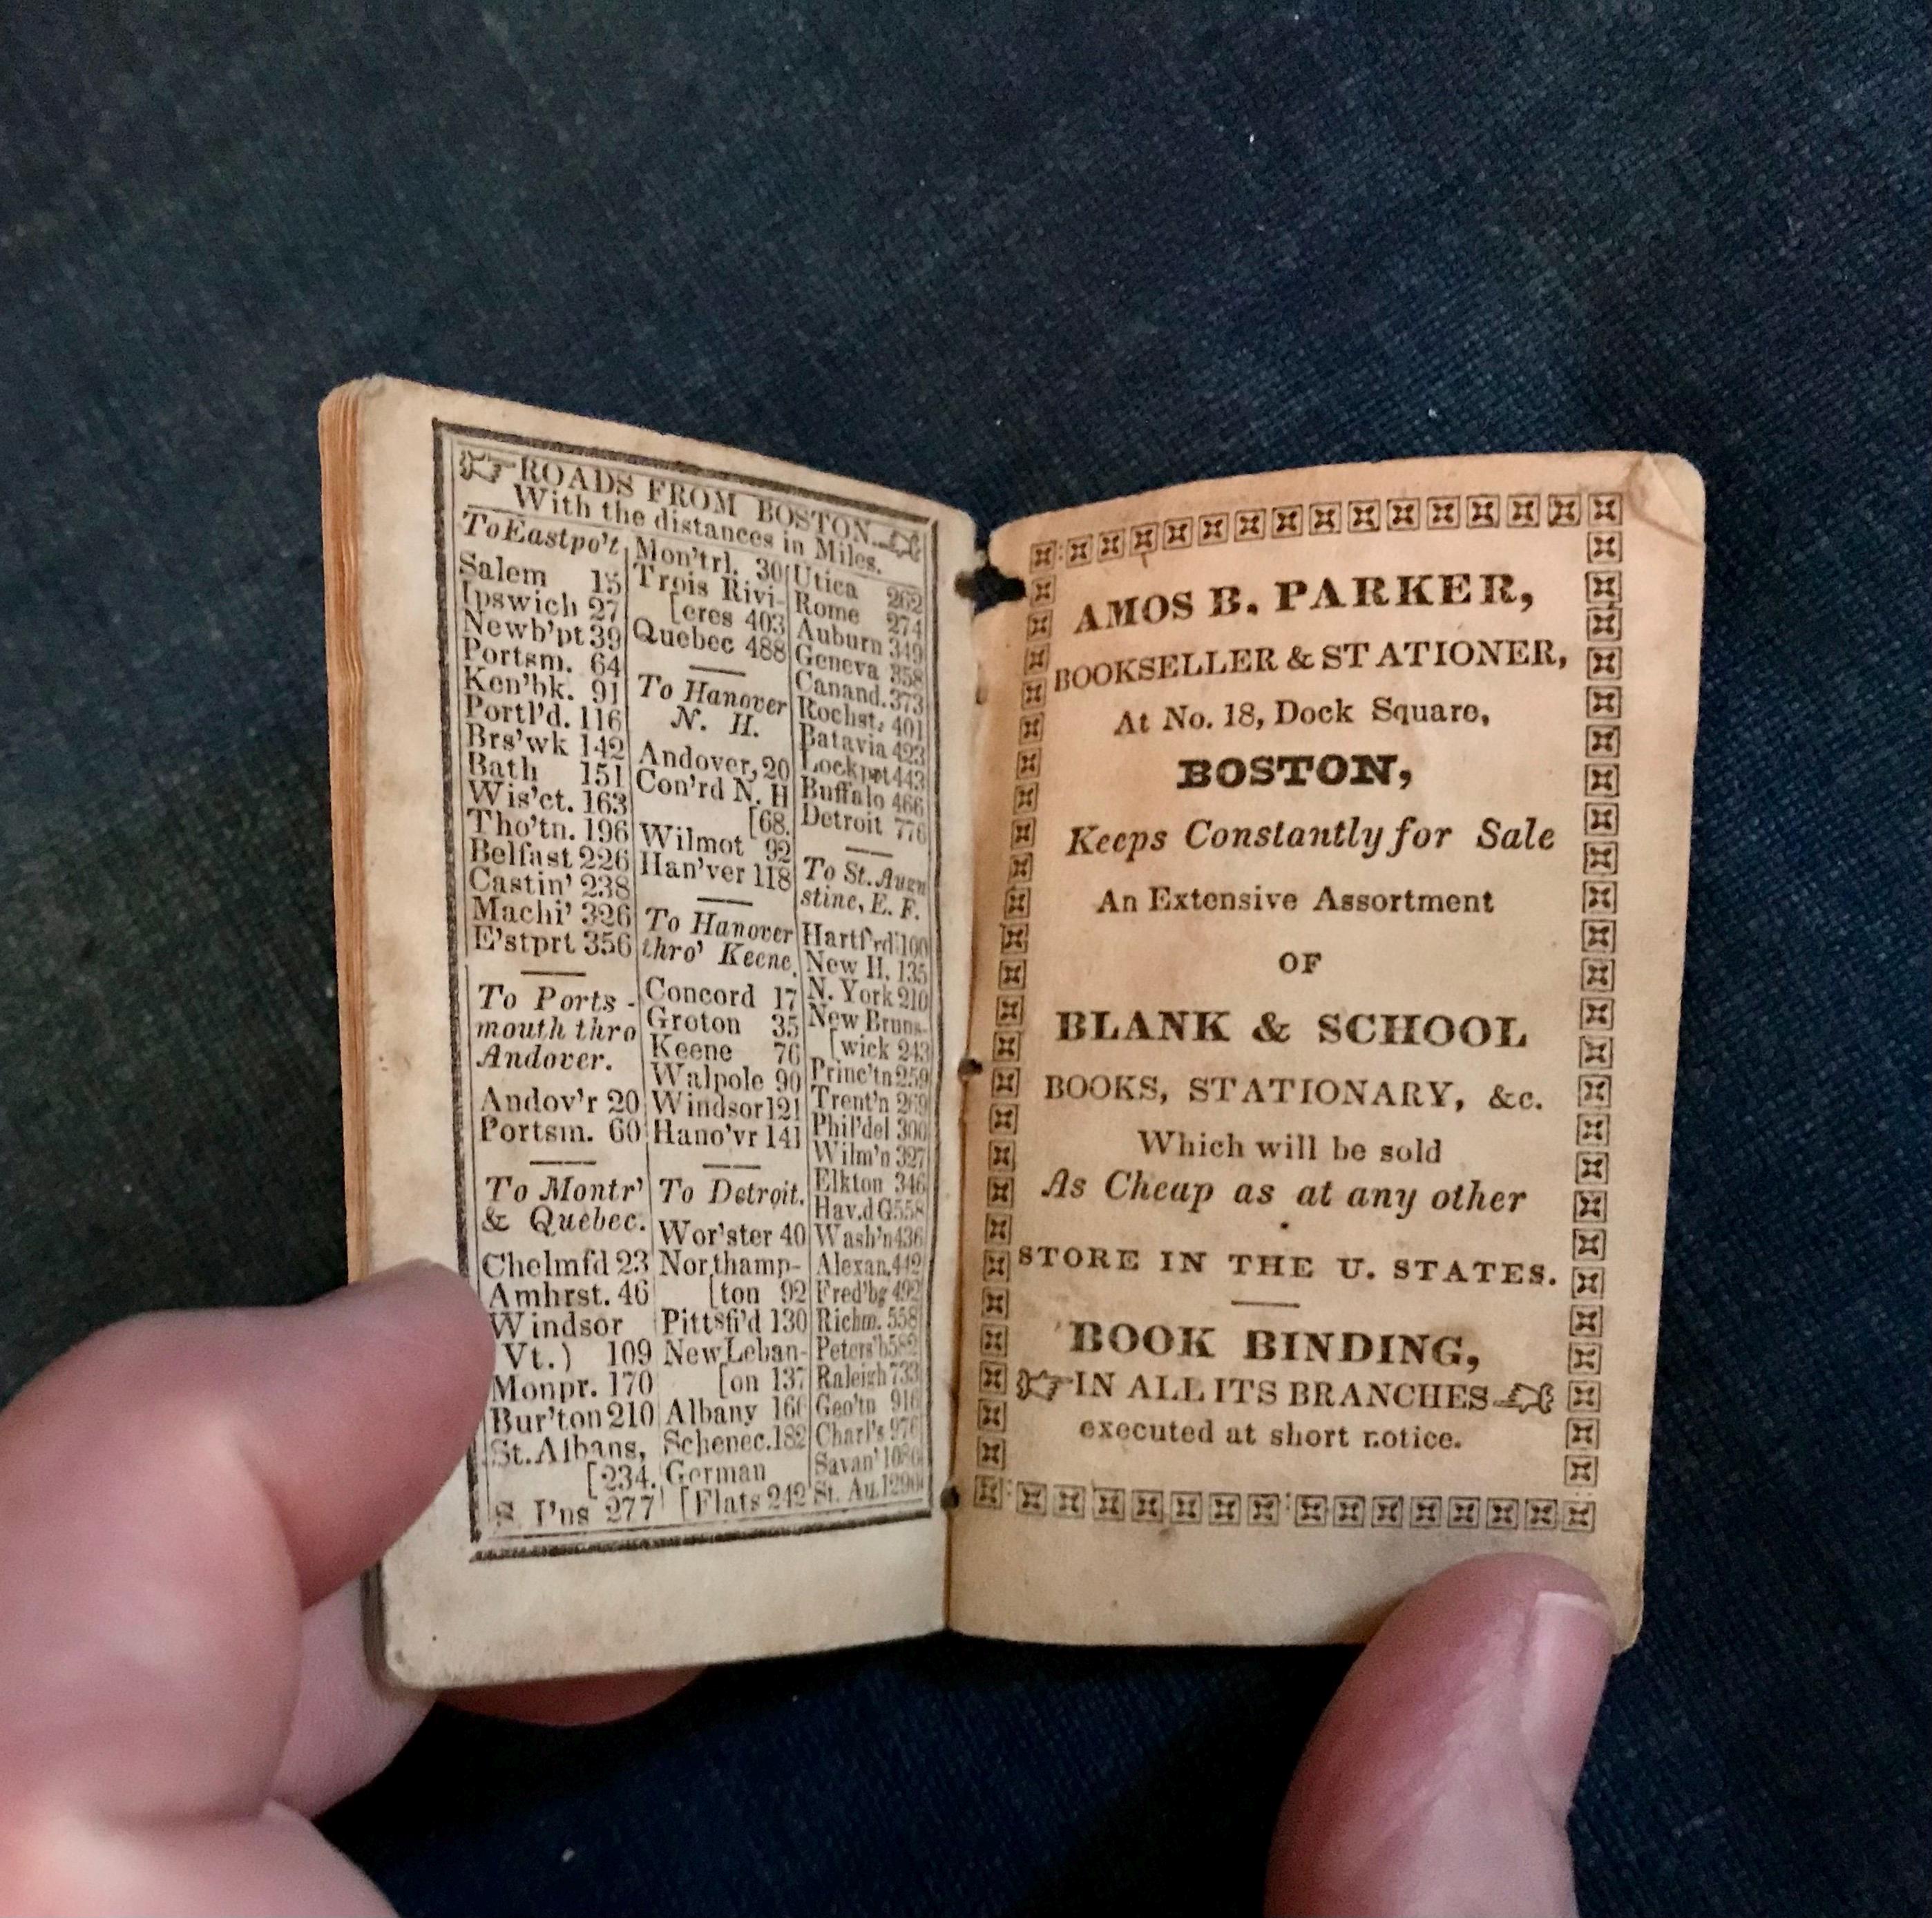 ROADS FROM BOSTON.
With the distances in Miles.
To Eastpo't
Salem 15
Ipswich 27
Newb'pt 39
Portsm. 64
Ken'bk. 91
Portl'd. 116
Brs'wk 142
Bath 151
Wis'ct. 163
Tho'tn. 196
Belfast 226
Castin' 238
Machi' 326
E'stprt 356
To Ports-
mouth thro
Andover.
Andov'r 20
Portsm. 60
To Montr'
& Quebec.
Chelmfd 23
Amhrst. 46
Windsor
Vt.) 109
Monpr. 170
Bur'ton 210
St. Albans,
[234.
277
Mon'trl. 30
Trois Rivi-
[eres 403
Quebec 488
To Hanover
N. H.
Andover, 20
Con'rd N. H
[68.
Wilmot 92
Han'ver 118
To Hanover
thro' Keene.
Concord 17
Groton 35
Keene 76
Walpole 90
Windsor 121
Hano'vr 141
To Detroit.
Wor'ster 40
Northamp-
[ton 92
Pittsfi'd 130
New Leban-
[on 137
Albany 16
Schenec. 182
German
[Flats 242
Utica 262
Rome 274
Auburn 349
Geneva 358
Canand. 373
Rochst. 401
Batavia 423
Lockpot 443
Buffalo 466
Detroit 776
To St. Augu
stine, E. F.
Hartf'rd 100
New H. 135
N. York 210
New Bruns-
[wick 243
Princ'tn 259
Trent'n 269
Phil'del 300
Wilm'n 327
Elkton 346
Hav.d G 558
Wash'n 436
Alexan. 442
Fred'bg 492
Richm. 558
Peters'b 582
Raleigh 733
Geo'tn 916
Charl's 976
Savan' 1080
St. Au. 1290
AMOS B. PARKER,
BOOKSELLER & STATIONER,
At No. 18, Dock Square,
BOSTON,
Keeps Constantly for Sale
An Extensive Assortment
OF
BLANK & SCHOOL
BOOKS, STATIONARY, &c.
Which will be sold
As Cheap as at any other
STORE IN THE U. STATES.
BOOK BINDING,
IN ALL ITS BRANCHES
executed at short notice.